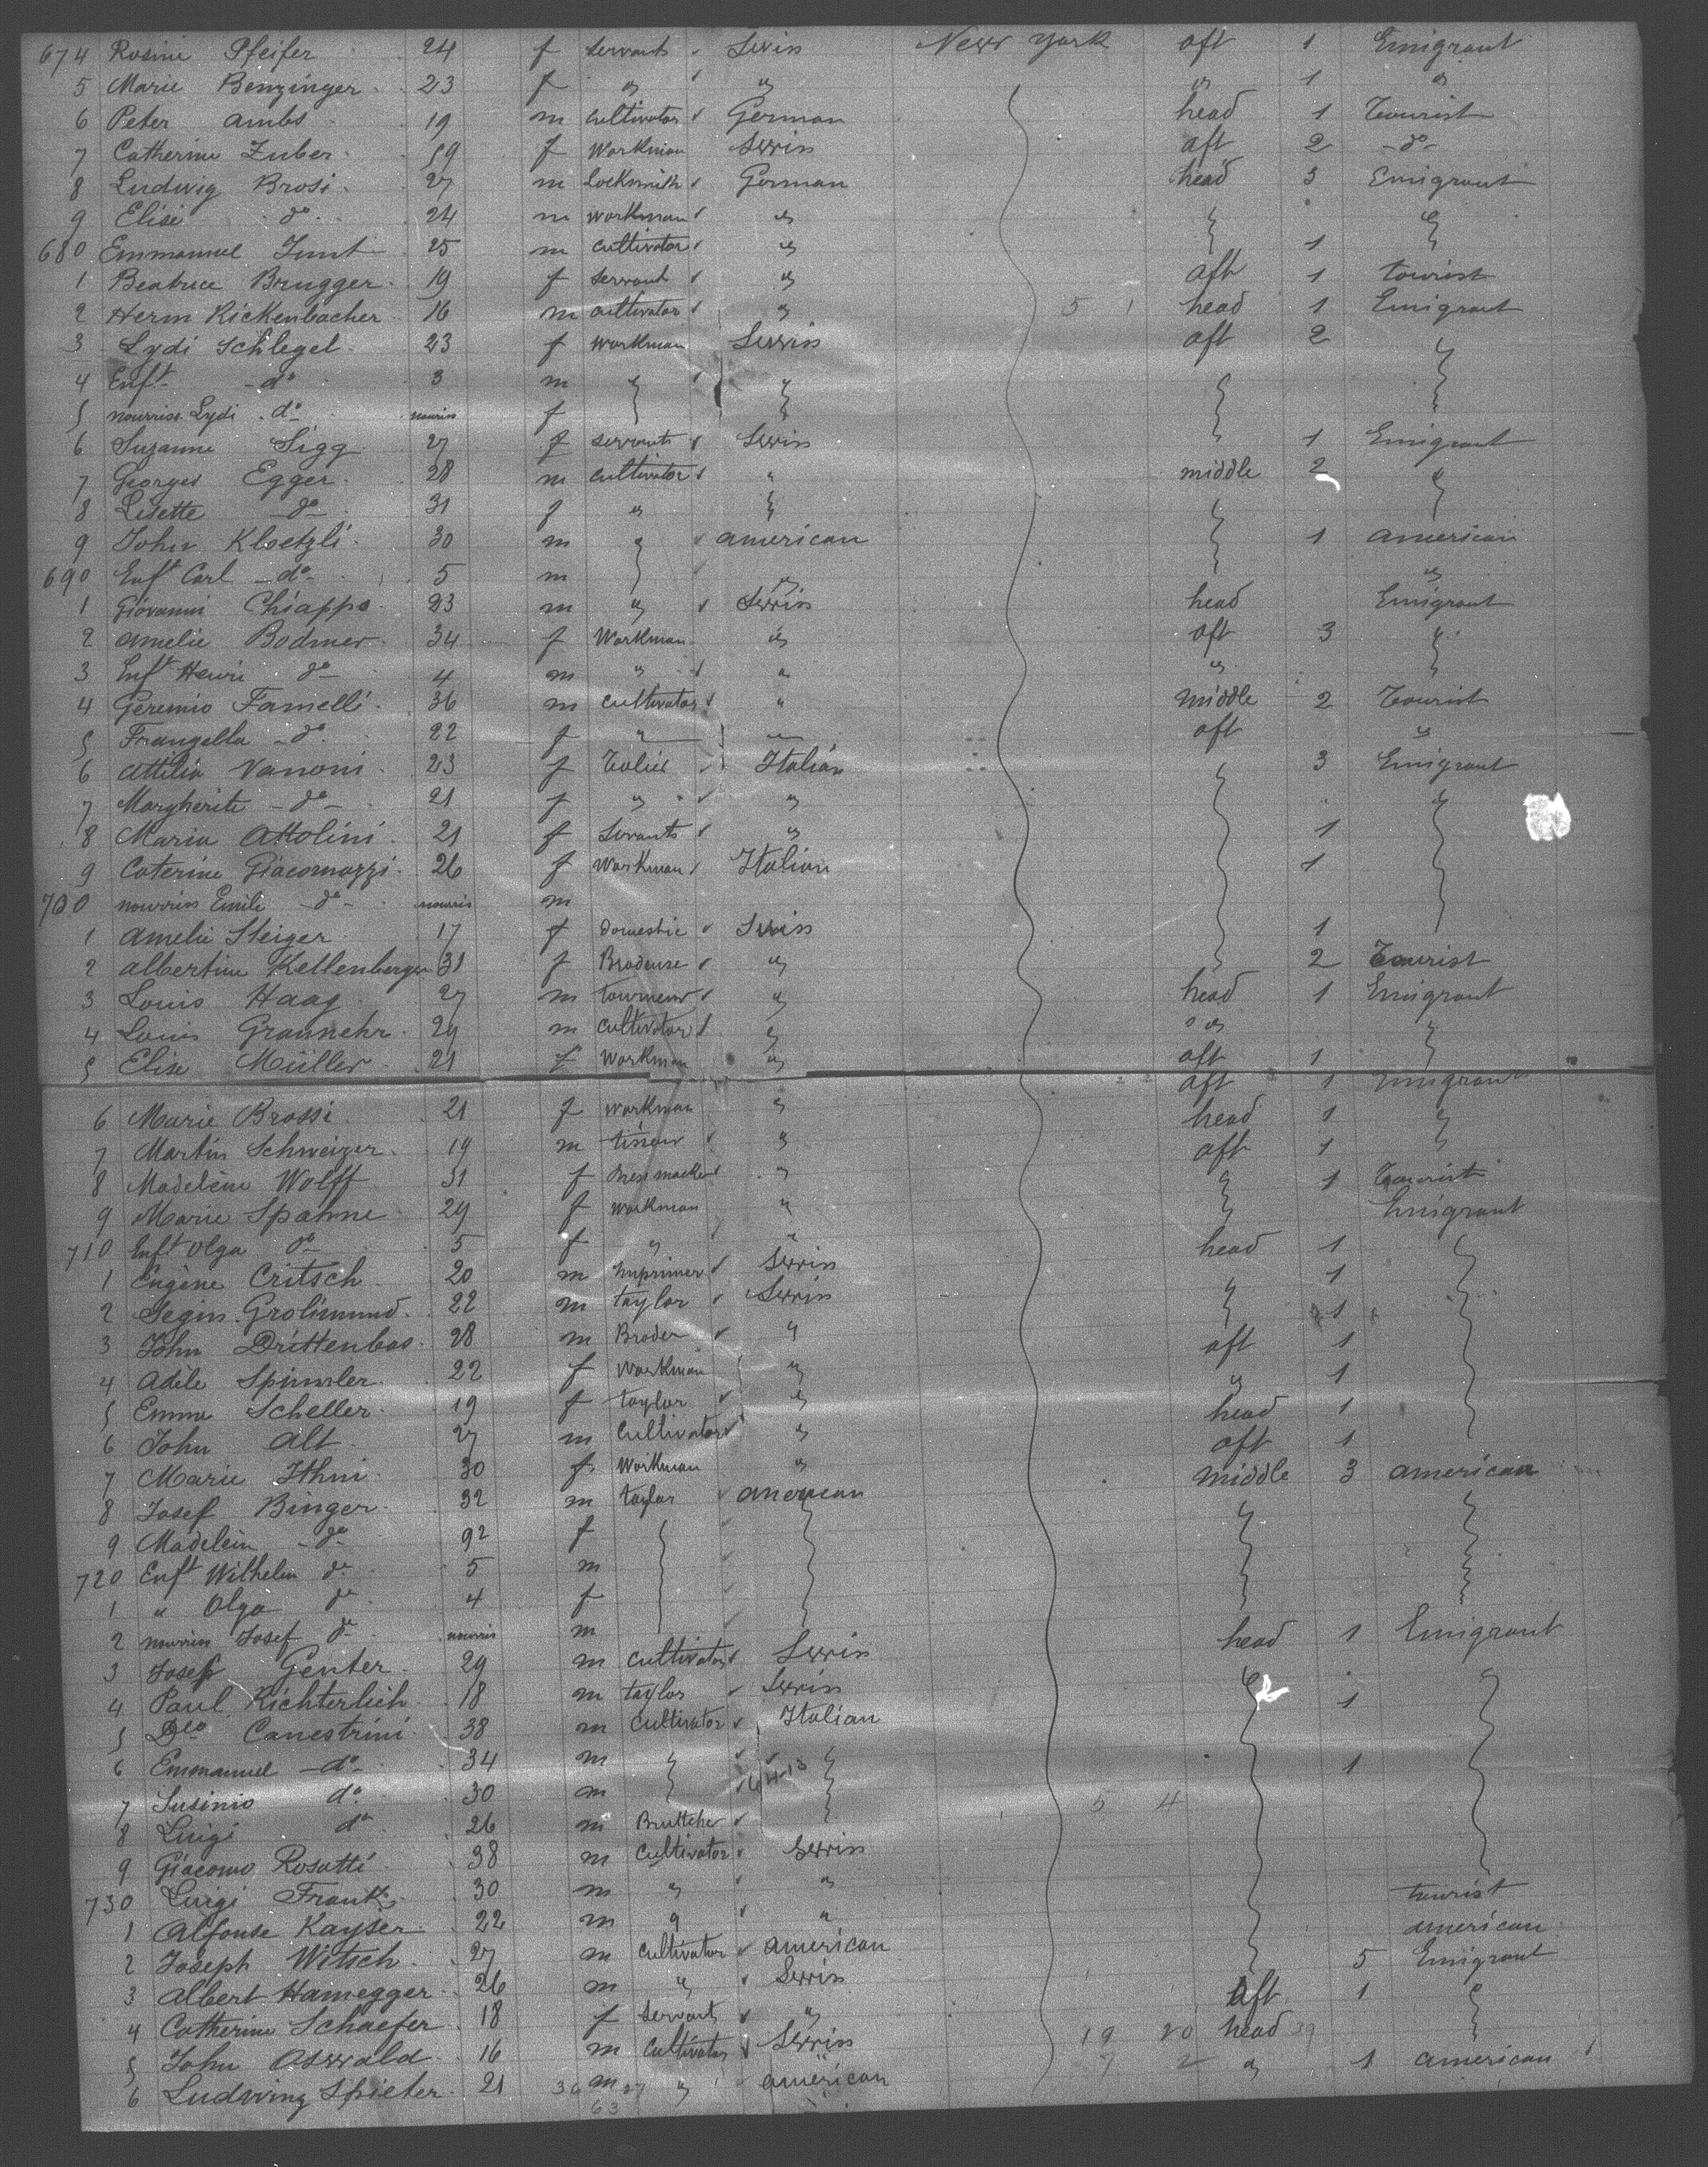 674 Rosine Pfeifer 24 f servant Swiss New York aft 1 Emigrant
5 Marie Benzinger 23 f " " " 1 "
6 Peter Ambs 19 m cultivator German head 1 Tourist
7 Catherine Zuber 59 f Workman Swiss aft 2 -do-
8 Ludwig Brosi 27 m Locksmith German head 3 Emigrant
9 Elise do 24 m workman "
680 Emmanuel Imt 25 m cultivator " 1
1 Beatrice Brugger 19 f servant " aft 1 tourist
2 Herm Rickenbacher 16 m cultivator " 5 1 head 1 Emigrant
3 Lydi Schlegel 23 f workman Swiss aft 2
4 Enft -do 3 m
5 nourriss. Lydi do nourriss f
6 Suzanne Sigg 27 f servant Swiss 1 Emigrant
7 Georges Egger 28 m cultivator " middle 2
8 Lisette -do- 31 f "
9 John Kloetzli 30 m american 1 american
690 Enft Carl -do- 5 m " "
1 Giovanni Chiappo 23 m " Swiss head Emigrant
2 Amelie Bodmer 34 f Workman " aft 3
3 Enft Henri do 4 m " " "
4 Geremio Famelli 36 m cultivator " middle 2 Tourist
5 Frangella -do 22 f " " aft "
6 Attilia Vanoni 23 f Italian 3 Emigrant
7 Margherite -do- 21 f " "
8 Maria Attolini 21 f Servants " 1
9 Caterina Giacomazzi 26 f workman Italian 1
700 nourriss Emile -do- nourris m
1 Amelie Steiger 17 f Domestic Swiss 1
2 Albertine Kellenberger 31 f Brodeuse " 2 Tourist
3 Louis Haag 27 m tourneur " head 1 Emigrant
4 Louis 29 m cultivator " "
5 Elise Müller 21 f Workman " aft 1
aft 1 Emigrant
6 Marie Brossi 21 f workman " head 1
7 Martin Schweizer 19 m tisseur " aft 1
8 Madeleine Wolff 31 f Dressmacker " 1 Tourist
9 Marie Spahne 29 f workman " Emigrant
710 Enft Olga do 5 f " " head 1
1 Eugène Critsch 20 m Imprimer Swiss 1
2 Grolimund 22 m taylor Swiss 1
3 John Drittenbas 28 m Broder " aft 1
4 Adèle Spinnler 22 f Workman " " 1
5 Emma Scheller 19 f taylor " head 1
6 John Alt 27 m Cultivator " aft 1
7 Marie Ithni 30 f Workman " middle 3 american
8 Josef Binger 32 m taylor american
9 Madelein -do- 92 f
720 Enft Wilhelm do 5 m
1 " Olga do 4 f
2 nourriss Josef do nourris m head 1 Emigrant
3 Josef Genter 29 m cultivator Swiss
4 Paul Richterlich 18 m taylor Swiss 1
5 Canestrini 38 m cultivator Italian
6 Emmanuel -do- 34 m 1
7 Susinio do 30 m 5 4
8 Luigi do 26 m Buttcher
9 Giacomo Rosatti 38 m cultivator Swiss
730 Luigi 30 m " " tourist
1 Alfonse Kayser 22 m " " american
2 Joseph Witsch 27 m cultivator american 5 Emigrant
3 Albert Hamegger 26 m " Swiss aft 1
4 Catherine Schaefer 18 f servant " 19 20 head 39
5 John Osswald 16 m Cultivator Swiss 7 2 " 1 american
6 Ludwing Spieter 21 36 m 27 " american
63